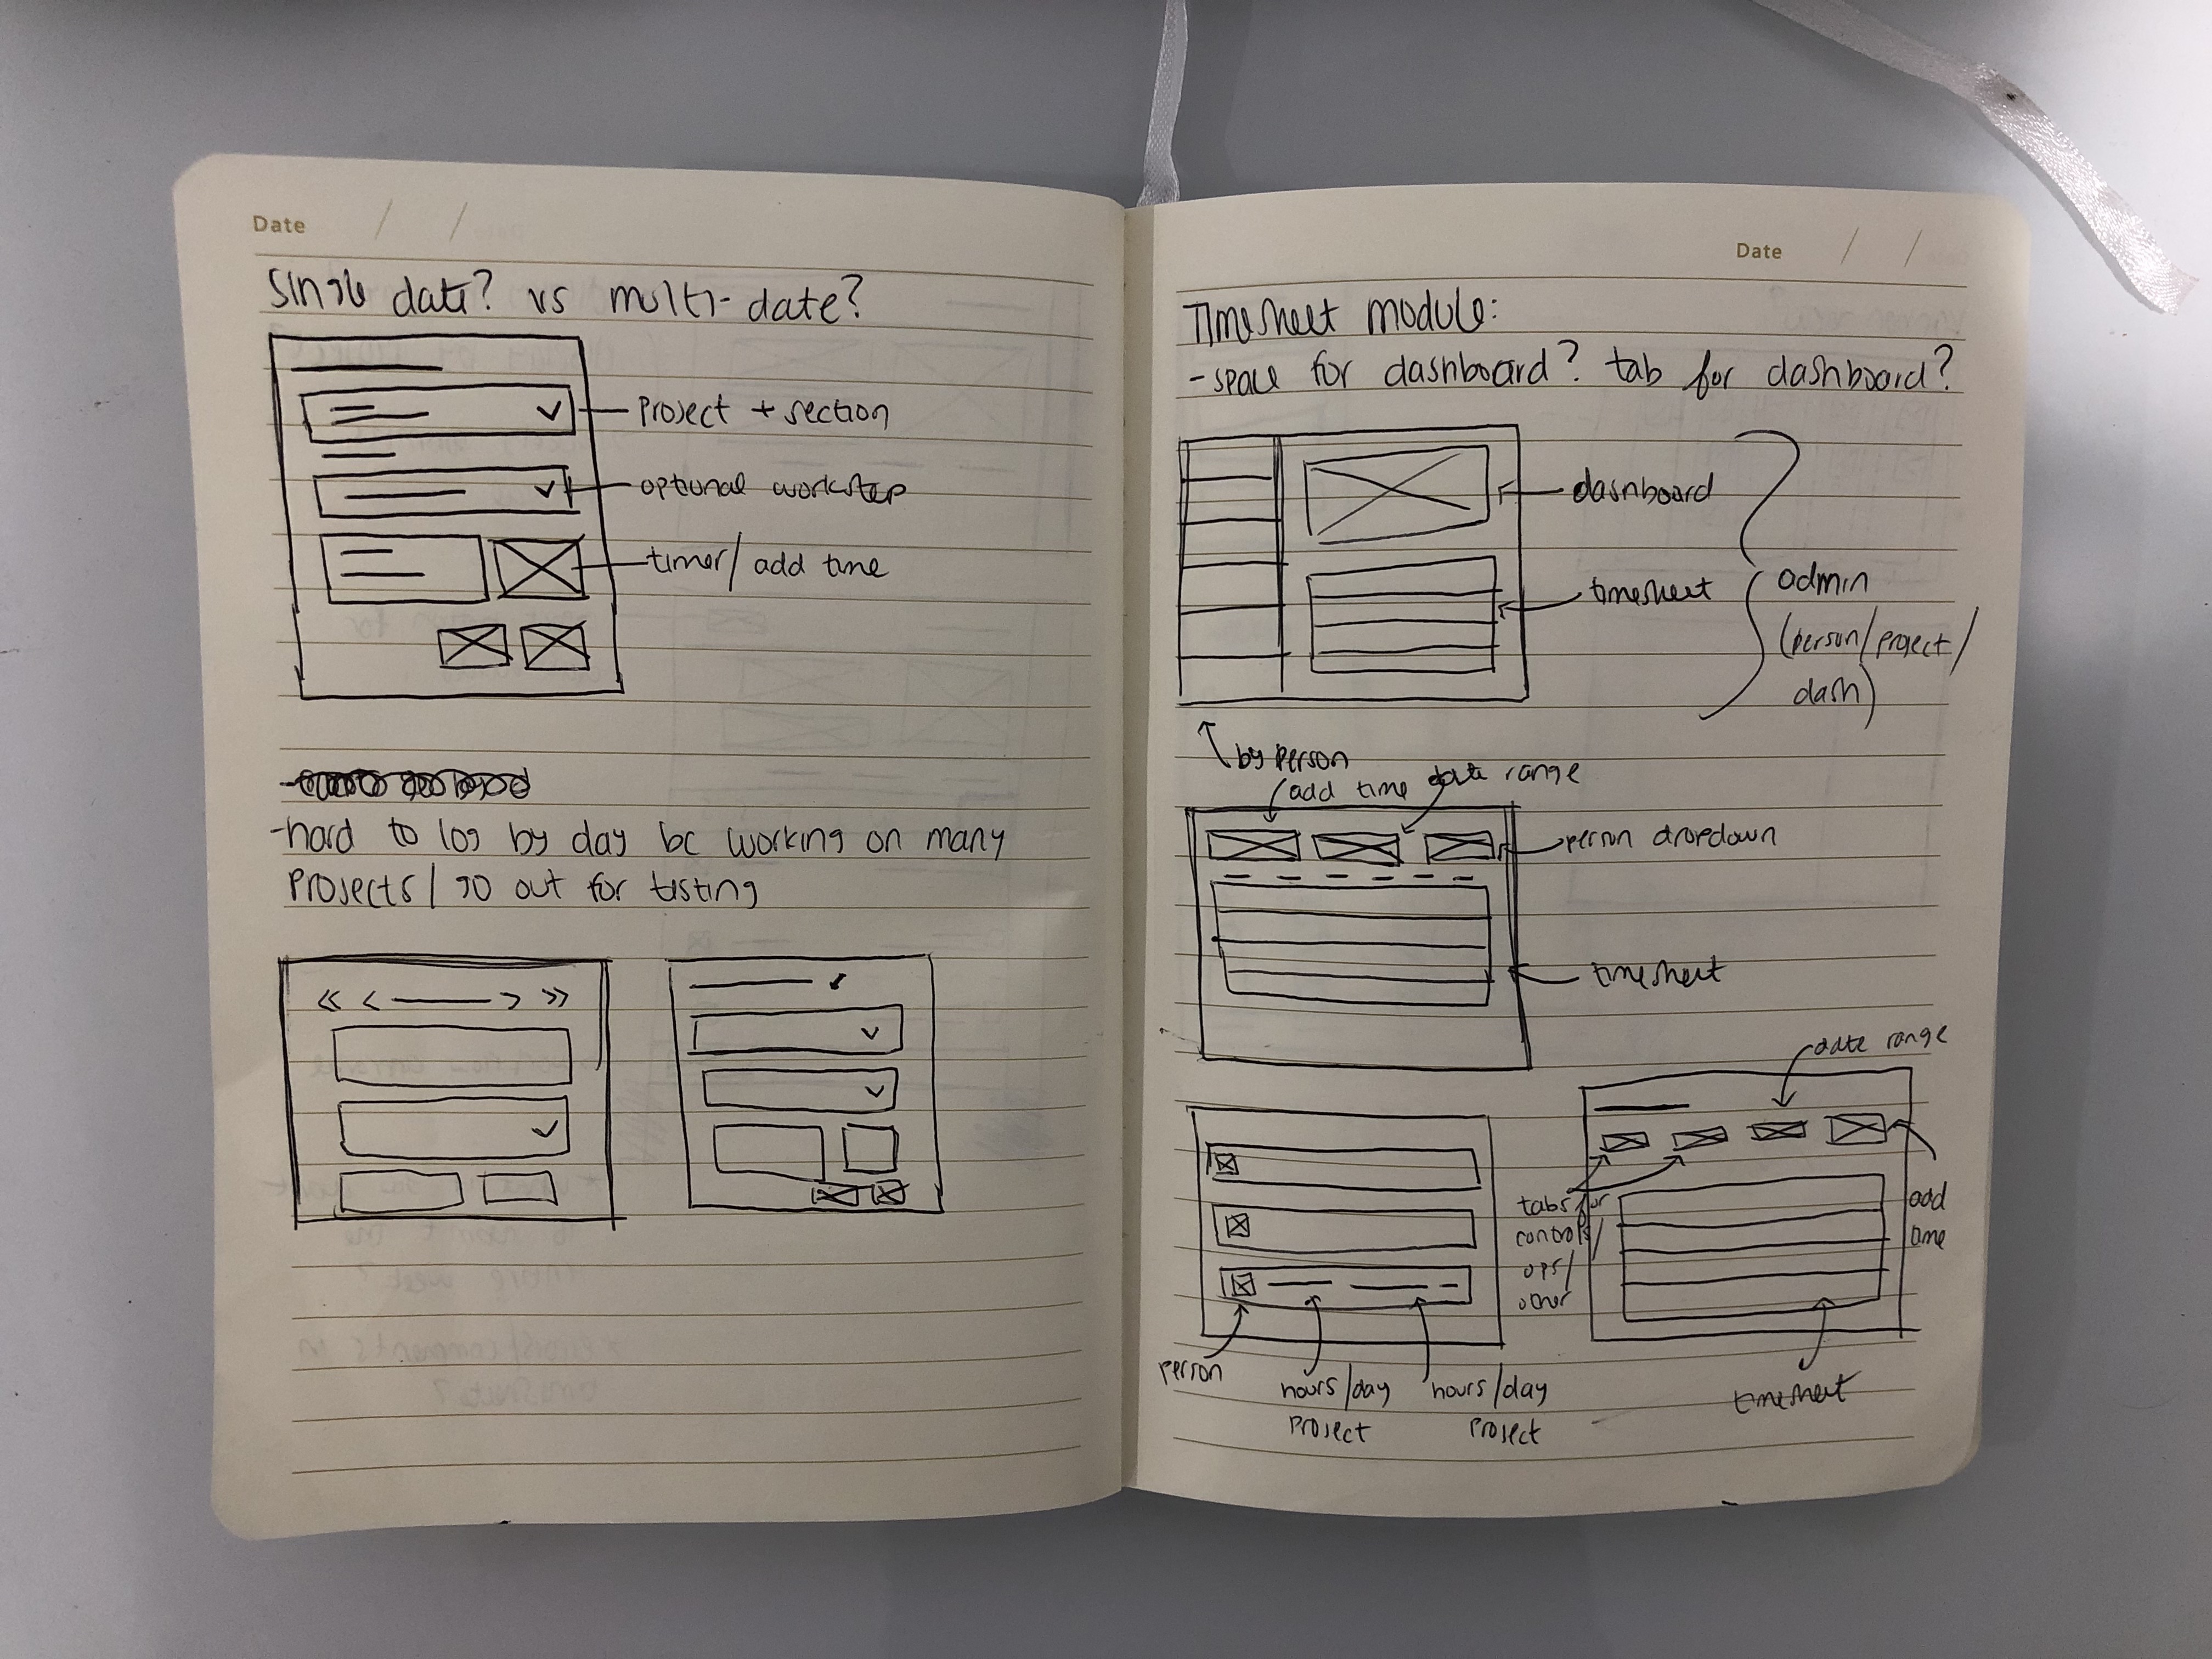 Date / /
single date? vs multi-date?
project + section
optional workstep
timer/ add time
-hard to log by day bc working on many
projects/ go out for testing
Date / /
Timesheet module:
-space for dashboard? tab for dashboard?
dashboard
timesheet
admin
(person/project/
dash)
by person
add time
date range
person dropdown
timesheet
date range
tabs for
controls/
ops/
other
add
time
person
hours/day
project
hours/day
project
timesheet